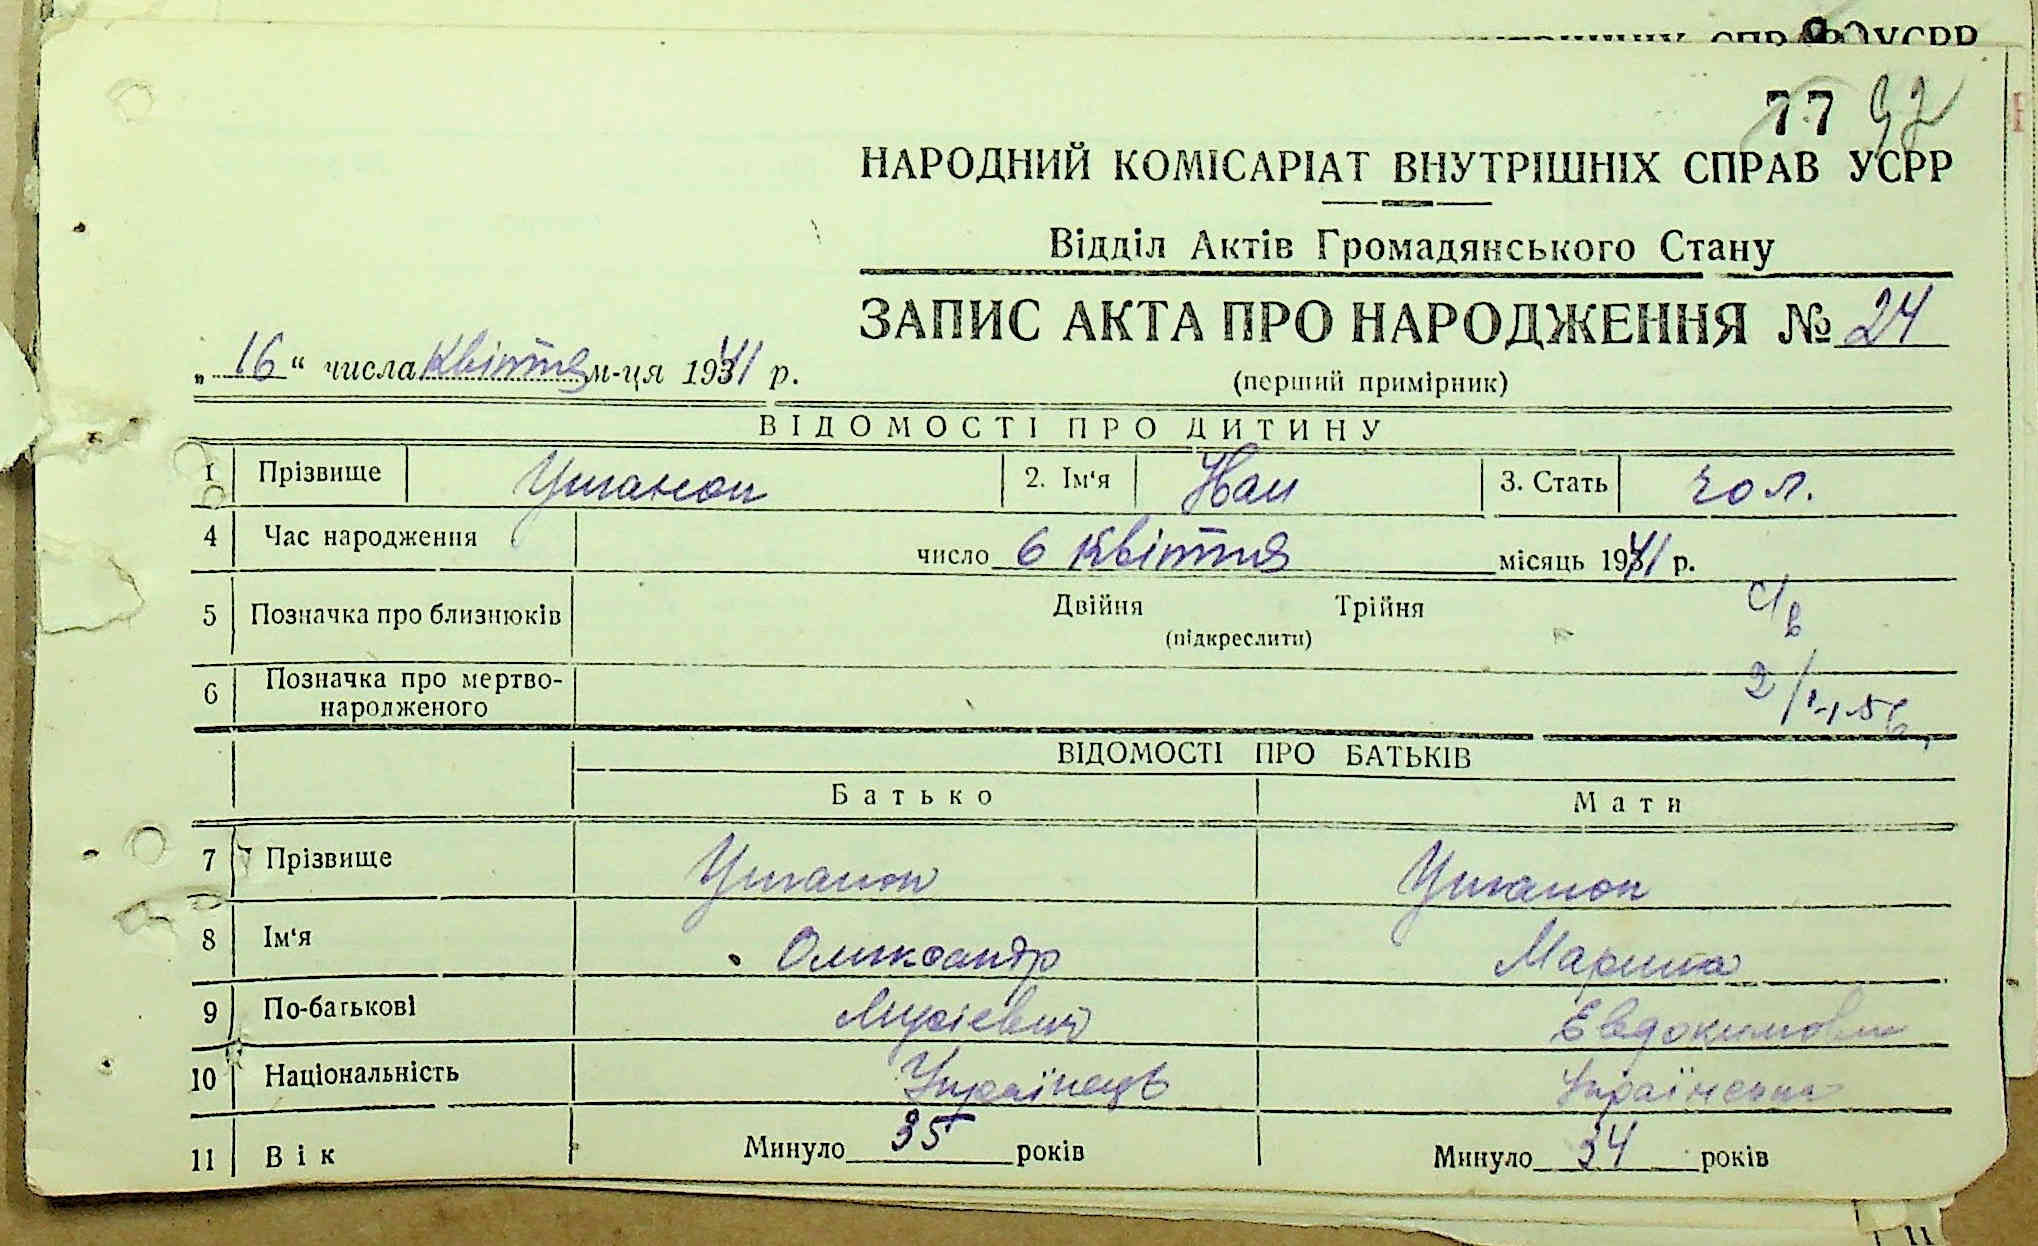 77 92
НАРОДНИЙ КОМІСАРІАТ ВНУТРІШНІХ СПРАВ УСРР
Відділ Актів Громадянського Стану
ЗАПИС АКТА ПРО НАРОДЖЕННЯ № 24
„16“ числа Квітня м-ця 1941 р.
(перший примірник)
ВІДОМОСТІ ПРО ДИТИНУ
1 Прізвище 2. Ім'я 3. Стать чол.
4 Час народження число 6 Квітня місяць 1941 р.
5 Позначка про близнюків Двійня Трійня
(підкреслити)
6 Позначка про мертво-
народженого
ВІДОМОСТІ ПРО БАТЬКІВ
Батько Мати
7 Прізвище
8 Ім'я Олександр Марина
9 По-батькові Мусієвич Евдокимовна
10 Національність Українець Українська
11 Вік Минуло 35 років Минуло 34 років